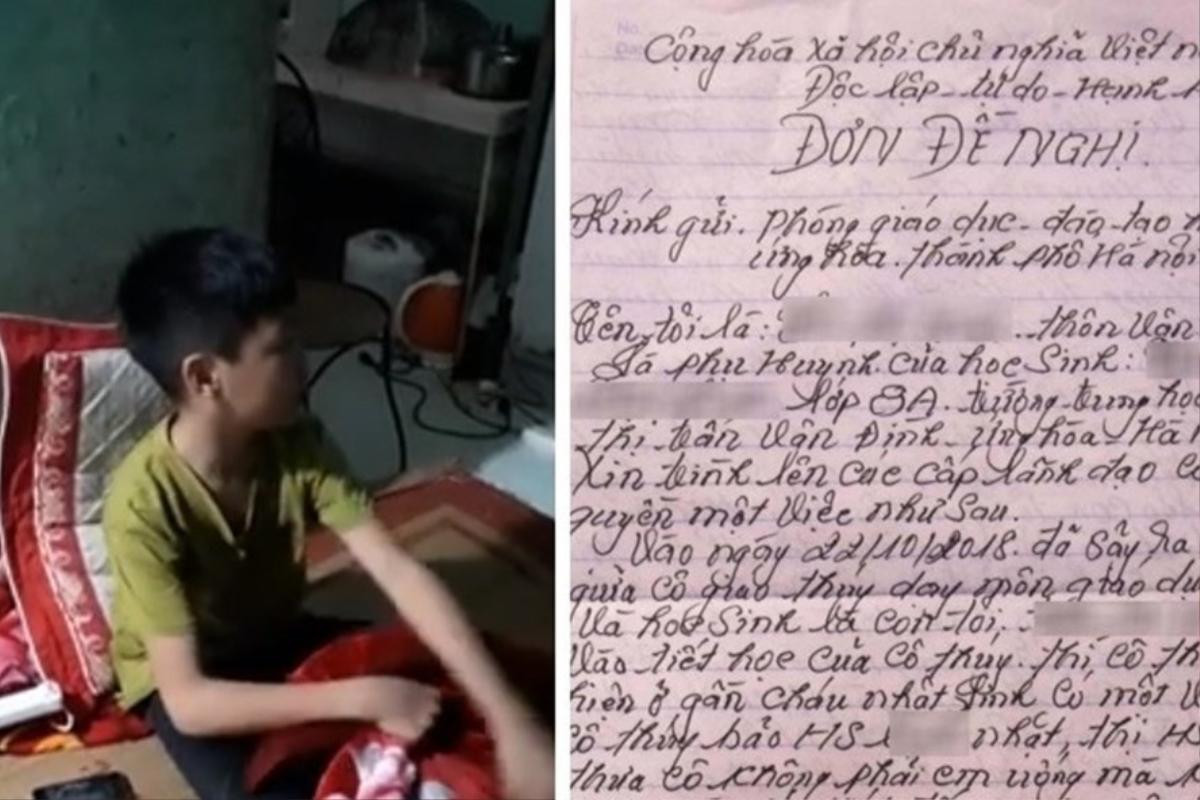 Cộng hóa xã hội chủ nghĩa Việt n
Độc lập - tự do - Hạnh
ĐƠN ĐỀ NGHỊ.
Kính gửi. Phóng giáo dục - đào tạo
ứng hòa. thành phố Hà nội
Tên tôi là: thôn Vận
Là phụ Huynh của học Sinh:
lớp 8A. trường trung học
thị trấn Vận Đình - ứng hòa - Hà
Xin trình lên các cấp lãnh đạo
quyền một Việc như Sau.
Vào ngày 22/10/2018. đã Sẩy ra
giữa cô giáo thúy day môn giáo dụ
Và học Sinh là con tôi,
Vào tiết học của cô thúy. thì cô th
hiện ở gần cháu nhất Sinh có một V
cô thúy bảo HS nhất, thị H
thưa cô không phải em uống mà